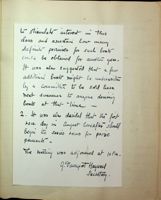 to stimulate interest in this
class and ascertain how many
definite promises for such boats
could be obtained for another year.
It was also suggested that a few
additional boats might be
by a committee to be sold here
next summer to anyone desiring
boats at that time —
2. It was also decided that the last
race day in August
begin its races
presents —
The meeting was adjourned at 10 P.M.
Secretary